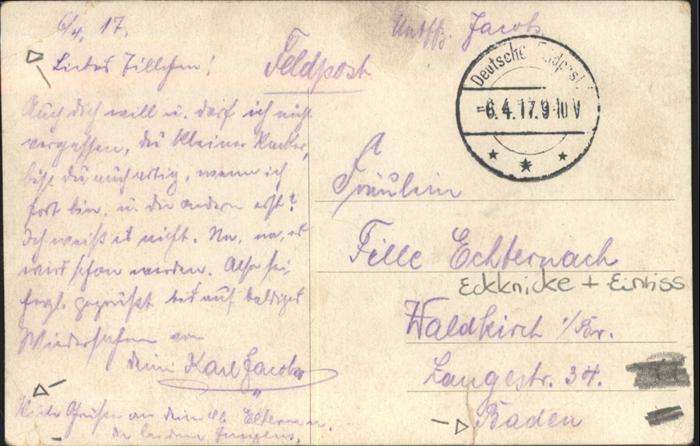 6/4. 17.
Liebes Tillchen!
Auch dich will u. darf ich nicht
vergessen, du kleiner Racker,
bist du auch artig, wenn ich
fort bin, u. die andern erst?
Ich weiß es nicht. Na, na, es
wird schon werden. Also sei
gegrüßt bis auf baldiges
Wiedersehen von
dein Karl Jacobs
an dein lb. Eltern u.
Feldpost
Untffz. Jacobs
Deutsche Feldpost
-6.4.17.9-10V
A
Fräulein
Tille Echternach
Eckknicke + Einriss
Waldkirch i/Br.
Langestr. 34.
Baden